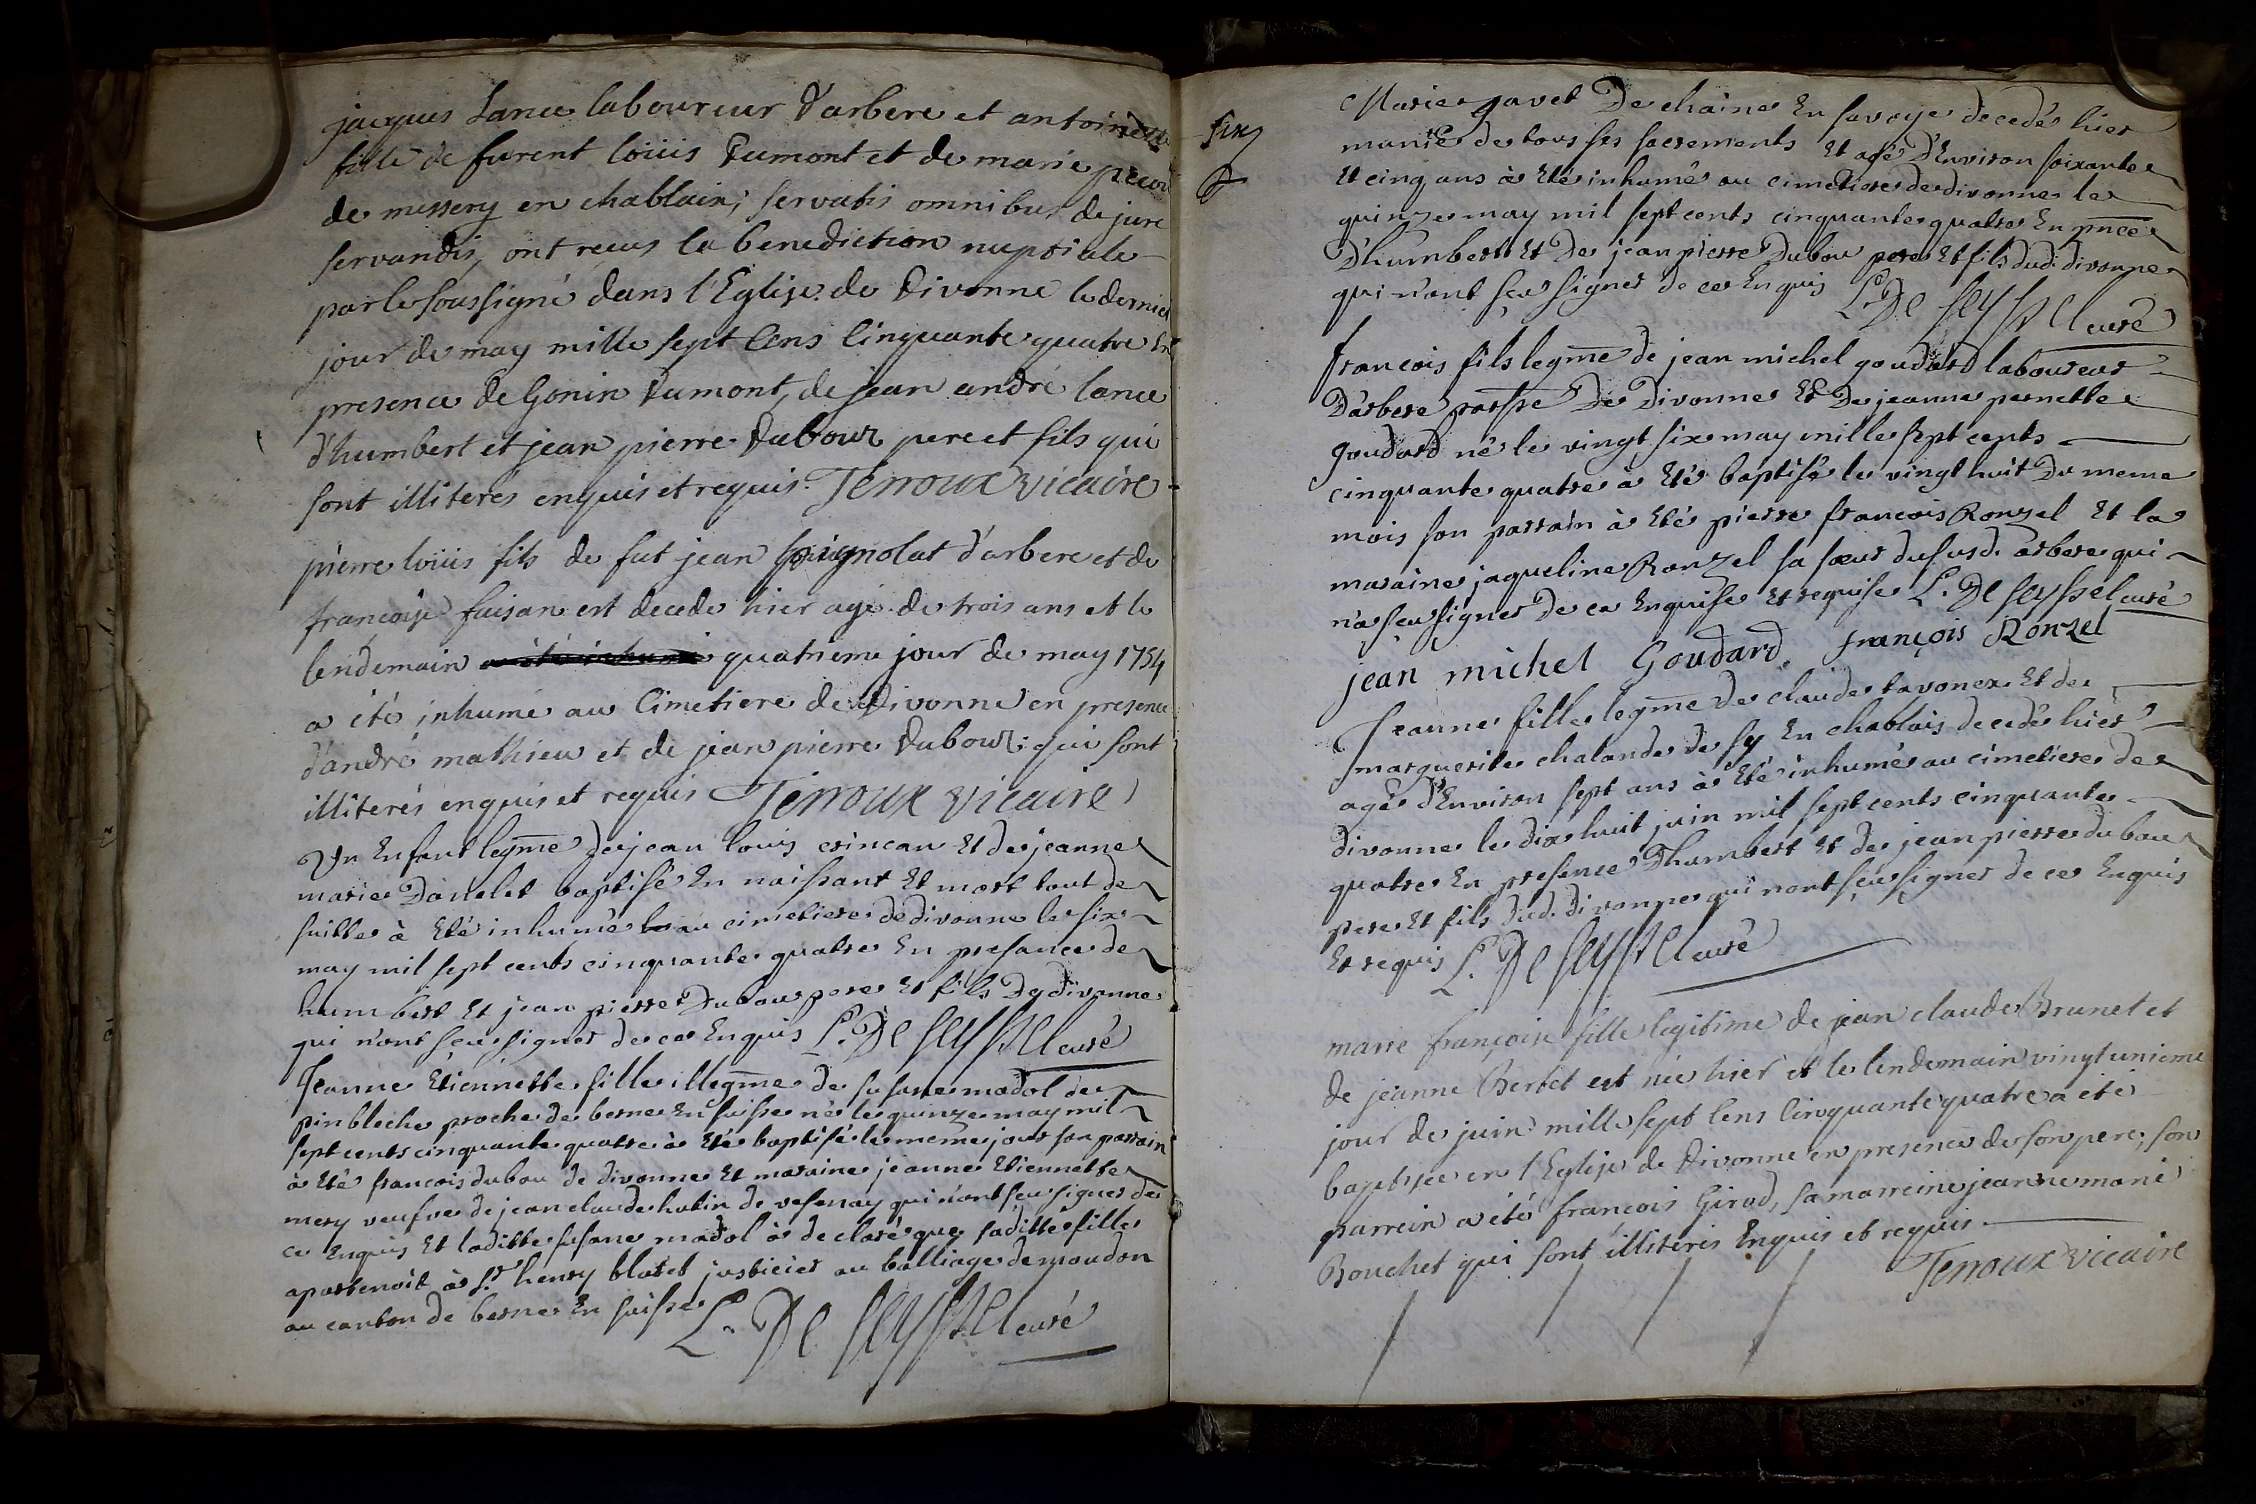 jacques Lance laboureur d'arbere et antoinette
fille de furent loüis dumont et de marie
de messery en chablaix; servatis omnibus de jure
servandis, ont reçus la benediction nuptiale
par le soussigné dans l'Eglise de divonne le dernier
jour de may mille sept Cens Cinquante quatre En
presence de Gonin dumont, de jean andré lance
d'humbert et jean pierre dubouz pere et fils qui
sont illiteres enquis et requis. Terroux vicaire
pierre loüis fils de fut jean d'arbere et de
françoise est decede hier agé de trois ans et le
lendemain quatrieme jour de may 1754
a été inhumé au Cimetiere de Divonne en presence
d'andré mathieu et de jean pierre dubouz; qui sont
illiterés enquis et requis Terroux vicaire
Un Enfant legme de jean louis crincan Et de jeanne
marie Danelet baptisé En naissant Et mort tout de
suitte à Eté inhumé au cimetiere de divonne le six
may mil sept cents cinquante quatre En presance de
humbert Et jean pierre Dubou pere Et fils De divonne
qui n'ont sçeu signer de ce Enquis L. De seyssel curé
Jeanne Etiennette fille illegme de susane madol de
pinbloche proche de berne En suisse né le quinze may mil
sept cents cinquante quatre à Eté baptisé le meme jour son parrain
à Eté francois dubou de divonne Et maraine jeanne Etiennette
mery veufve de jean claude hutin de vesenay qui n'ont sçeu signer de
ce Enquis Et laditte susane madol à declaré que saditte fille
apartenoit à Sr henry blatet justicier au balliage de moudon
au canton de berne En suisse L. De seyssel curé
six
Marie gavet De chaine En savoye decedé hier
munie de tous ses sacrements Et agé D'Environ soixante
Et cinq ans à Eté inhumé au cimetiere de divonne le
quinze may mil sept cents cinquante quatre En pnce
D'humbert Et De jean pierre Dubou pere Et fils dud. divonne
qui n'ont sçeu signer de ce Enquis L. De seyssel curé
francois fils legme de jean michel goudard laboureur
D'arbere parsse De Divonne Et De jeanne pernette
goudard né le vingt six may mille sept cents
cinquante quatre à Eté baptisé le vingt huit Du meme
mois son parrain à Eté pierre francois Ronzel Et la
maraine jaqueline Ronzel sa sœur dusud. arbere qui
n'a sçeu signer De ce Enquise Et requise L. De seyssel curé
jean michel Goudard françois Ronzel
Jeanne fille legme De claude tavonex Et de
marguerite chalande de sy En chablais decedé hier
agé D'Environ sept ans à Eté inhumé au cimetiere de
divonne le dix huit juin mil sept cents cinquante
quatre En presence D'humbert Et de jean pierre dubou
pere Et fils dud. divonne qui n'ont sçeu signer de ce Enquis
Et requis L. De seyssel curé
marie françoise fille legitime de jean claude Brunet et
de jeanne Bertet est née hier et le lendemain vingt unieme
jour de juin mille sept Cens Cinquante quatre a été
baptisée en l'Eglise de divonne en presence de son pere; son
parrein a été françois Girod, sa marreine jeanne marie
Bouchet qui sont illiterés Enquis et requis
Terroux vicaire